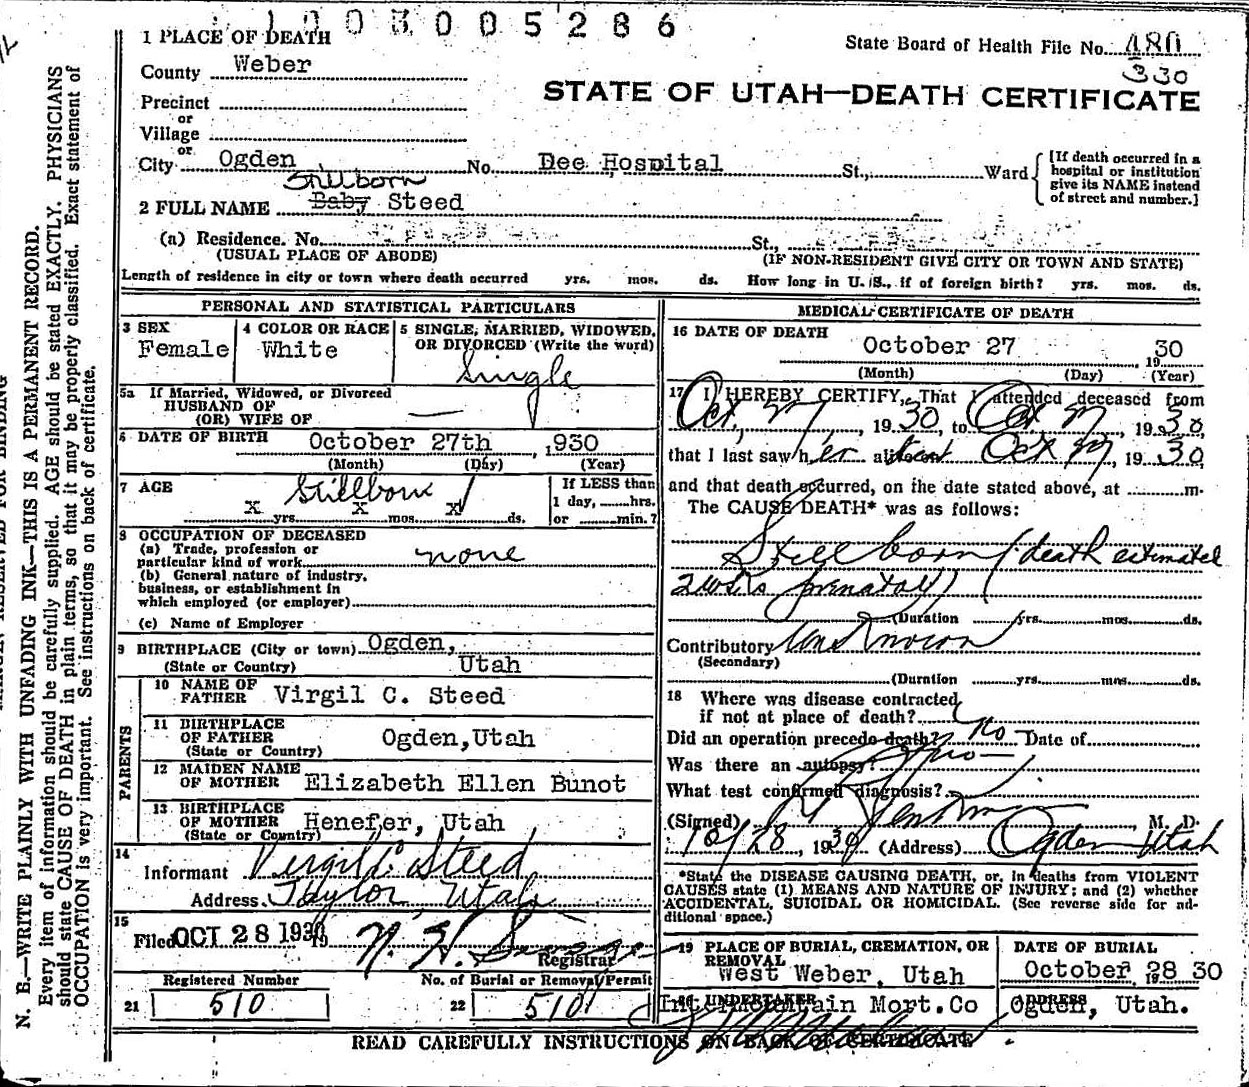 1003005286
1 PLACE OF DEATH
State Board of Health File No. 480
County Weber
330
STATE OF UTAH—DEATH CERTIFICATE
Precinct
or
Village
or
City Ogden No. Dee Hospital St., Ward
[If death occurred in a hospital or institution give its NAME instead of street and number.]
Stillborn
2 FULL NAME Baby Steed
(a) Residence. No. St.,
(USUAL PLACE OF ABODE) (IF NON-RESIDENT GIVE CITY OR TOWN AND STATE)
Length of residence in city or town where death occurred yrs. mos. ds. How long in U. S., if of foreign birth? yrs. mos. ds.
PERSONAL AND STATISTICAL PARTICULARS
3 SEX
Female
4 COLOR OR RACE
White
5 SINGLE, MARRIED, WIDOWED,
OR DIVORCED (Write the word)
Single
5a If Married, Widowed, or Divorced
HUSBAND OF
(OR) WIFE OF —
6 DATE OF BIRTH October 27th, 1930
(Month) (Day) (Year)
7 AGE Stillborn
X yrs. X mos. X ds.
If LESS than
1 day, hrs.
or min.?
8 OCCUPATION OF DECEASED
(a) Trade, profession or
particular kind of work none
(b) General nature of industry,
business, or establishment in
which employed (or employer)
(c) Name of Employer
9 BIRTHPLACE (City or town) Ogden,
(State or Country) Utah
PARENTS
10 NAME OF
FATHER Virgil C. Steed
11 BIRTHPLACE
OF FATHER Ogden, Utah
(State or Country)
12 MAIDEN NAME
OF MOTHER Elizabeth Ellen Bunot
13 BIRTHPLACE
OF MOTHER Henefer, Utah
(State or Country)
14
Informant Virgil C. Steed
Address Taylor, Utah
15
Filed OCT 28 1930 19 N. H.
Registrar
Registered Number No. of Burial or Removal Permit
21 510 22 510
MEDICAL CERTIFICATE OF DEATH
16 DATE OF DEATH
October 27 1930
(Month) (Day) (Year)
17 I HEREBY CERTIFY, That I attended deceased from
Oct. 27, 1930, to Oct 27, 1930,
that I last saw her Oct 27, 1930,
and that death occurred, on the date stated above, at m.
The CAUSE DEATH* was as follows:
Stillborn (death estimated
2 wks prenatal)
(Duration yrs. mos. ds.
Contributory Unknown
(Secondary)
(Duration yrs. mos. ds.
18 Where was disease contracted
if not at place of death?
Did an operation precede death? no Date of
Was there an autopsy? no
What test confirmed diagnosis?
(Signed) M. D.
10/28, 1930 (Address) Ogden Utah
*State the DISEASE CAUSING DEATH, or, in deaths from VIOLENT
CAUSES state (1) MEANS AND NATURE OF INJURY; and (2) whether
ACCIDENTAL, SUICIDAL OR HOMICIDAL. (See reverse side for ad-
ditional space.)
19 PLACE OF BURIAL, CREMATION, OR
REMOVAL
West Weber, Utah
DATE OF BURIAL
October 28 1930
20 UNDERTAKER
Intermountain Mort.Co
ADDRESS
Ogden, Utah.
READ CAREFULLY INSTRUCTIONS ON BACK OF CERTIFICATE
N. B.—WRITE PLAINLY WITH UNFADING INK—THIS IS A PERMANENT RECORD.
Every item of information should be carefully supplied. AGE should be stated EXACTLY. PHYSICIANS
should state CAUSE OF DEATH in plain terms, so that it may be properly classified. Exact statement of
OCCUPATION is very important. See instructions on back of certificate.